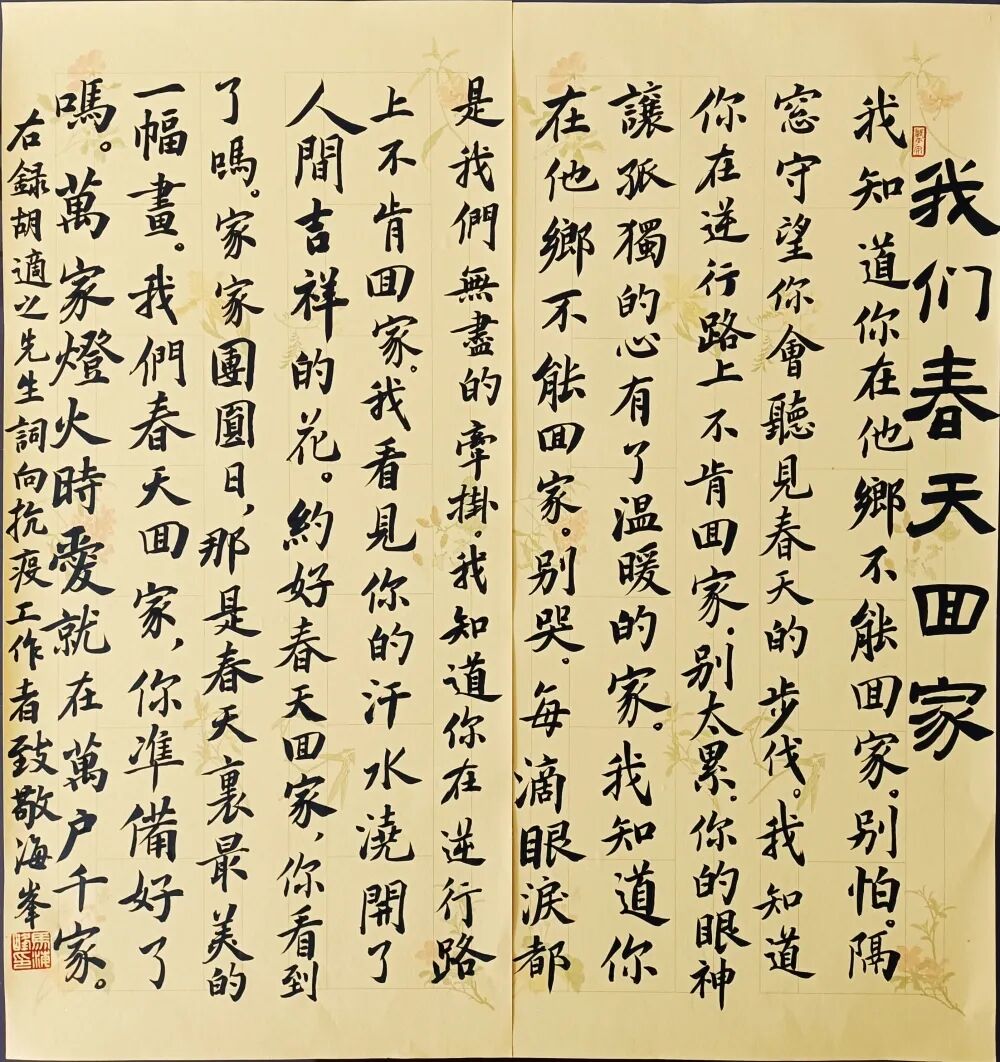 我们春天回家
我知道你在他鄉不能回家。别怕。隔
窓守望你會聽見春天的步伐。我知道
你在逆行路上不肯回家.别太累.你的眼神
讓孤獨的心有了温暖的家。我知道你
在他鄉不能回家。别哭。每滴眼淚都
是我們無盡的牽掛。我知道你在逆行路
上不肯回家。我看見你的汗水澆開了
人間吉祥的花。約好春天回家，你看到
了嗎。家家團圓日，那是春天裏最美的
一幅畫。我們春天回家，你準備好了
嗎。萬家燈火時愛就在萬户千家。
右録胡適之先生詞向抗疫工作者致敬海峯